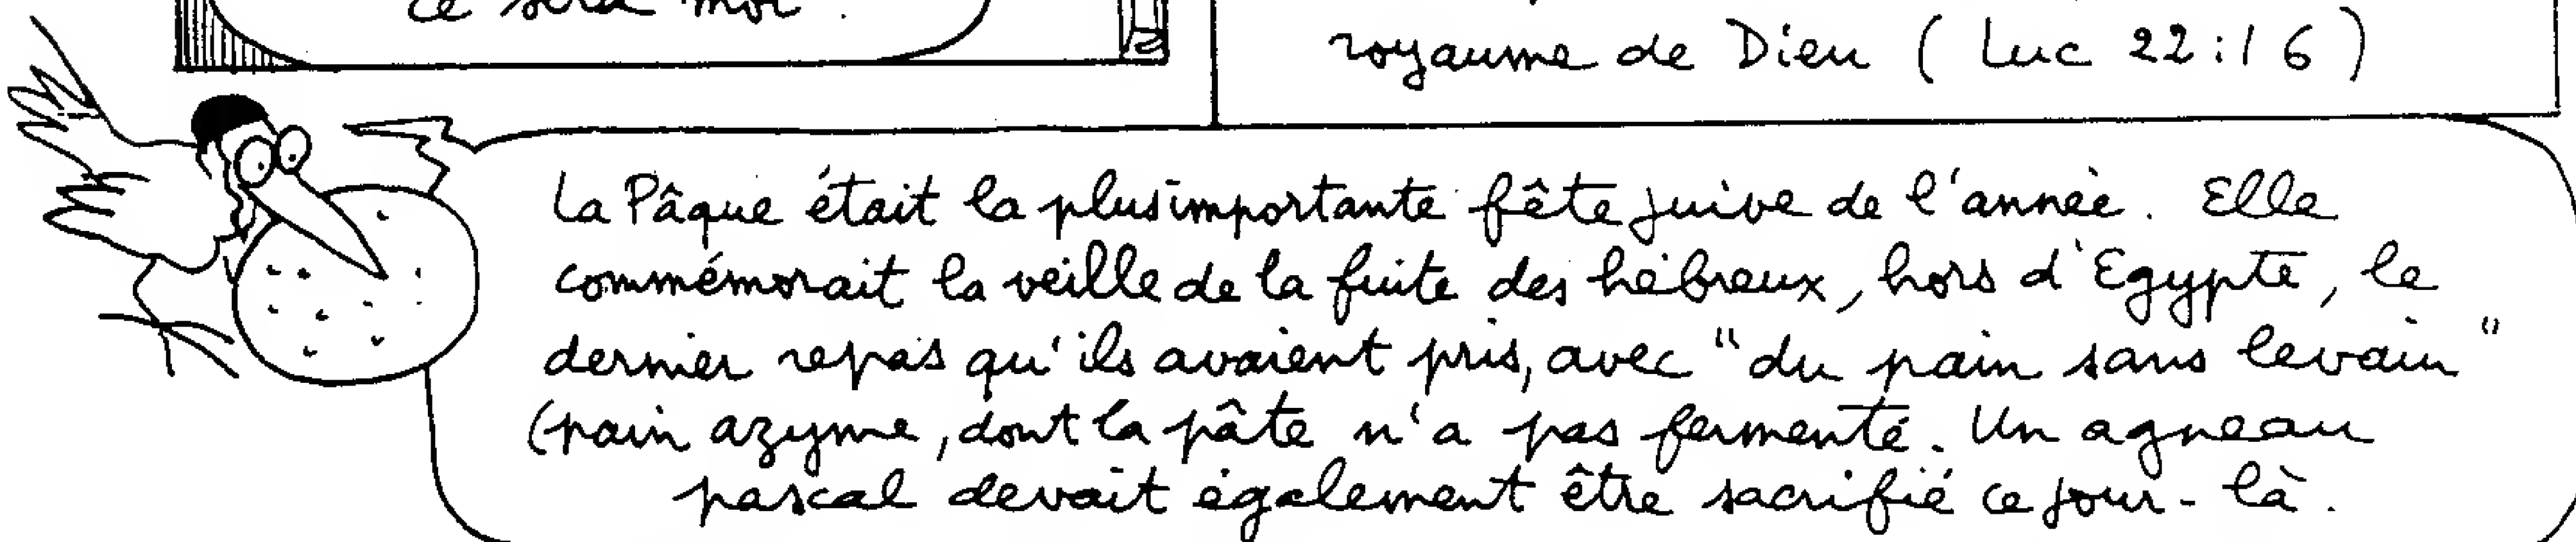 ce sera moi.
royaume de Dieu ( Luc 22:16 )
La Pâque était la plus importante fête juive de l'année. Elle
commémorait la veille de la fuite des hébreux, hors d'Egypte, le
dernier repas qu'ils avaient pris, avec "du pain sans levain"
(pain azyme, dont la pâte n'a pas fermenté. Un agneau
pascal devait également être sacrifié ce jour-là.